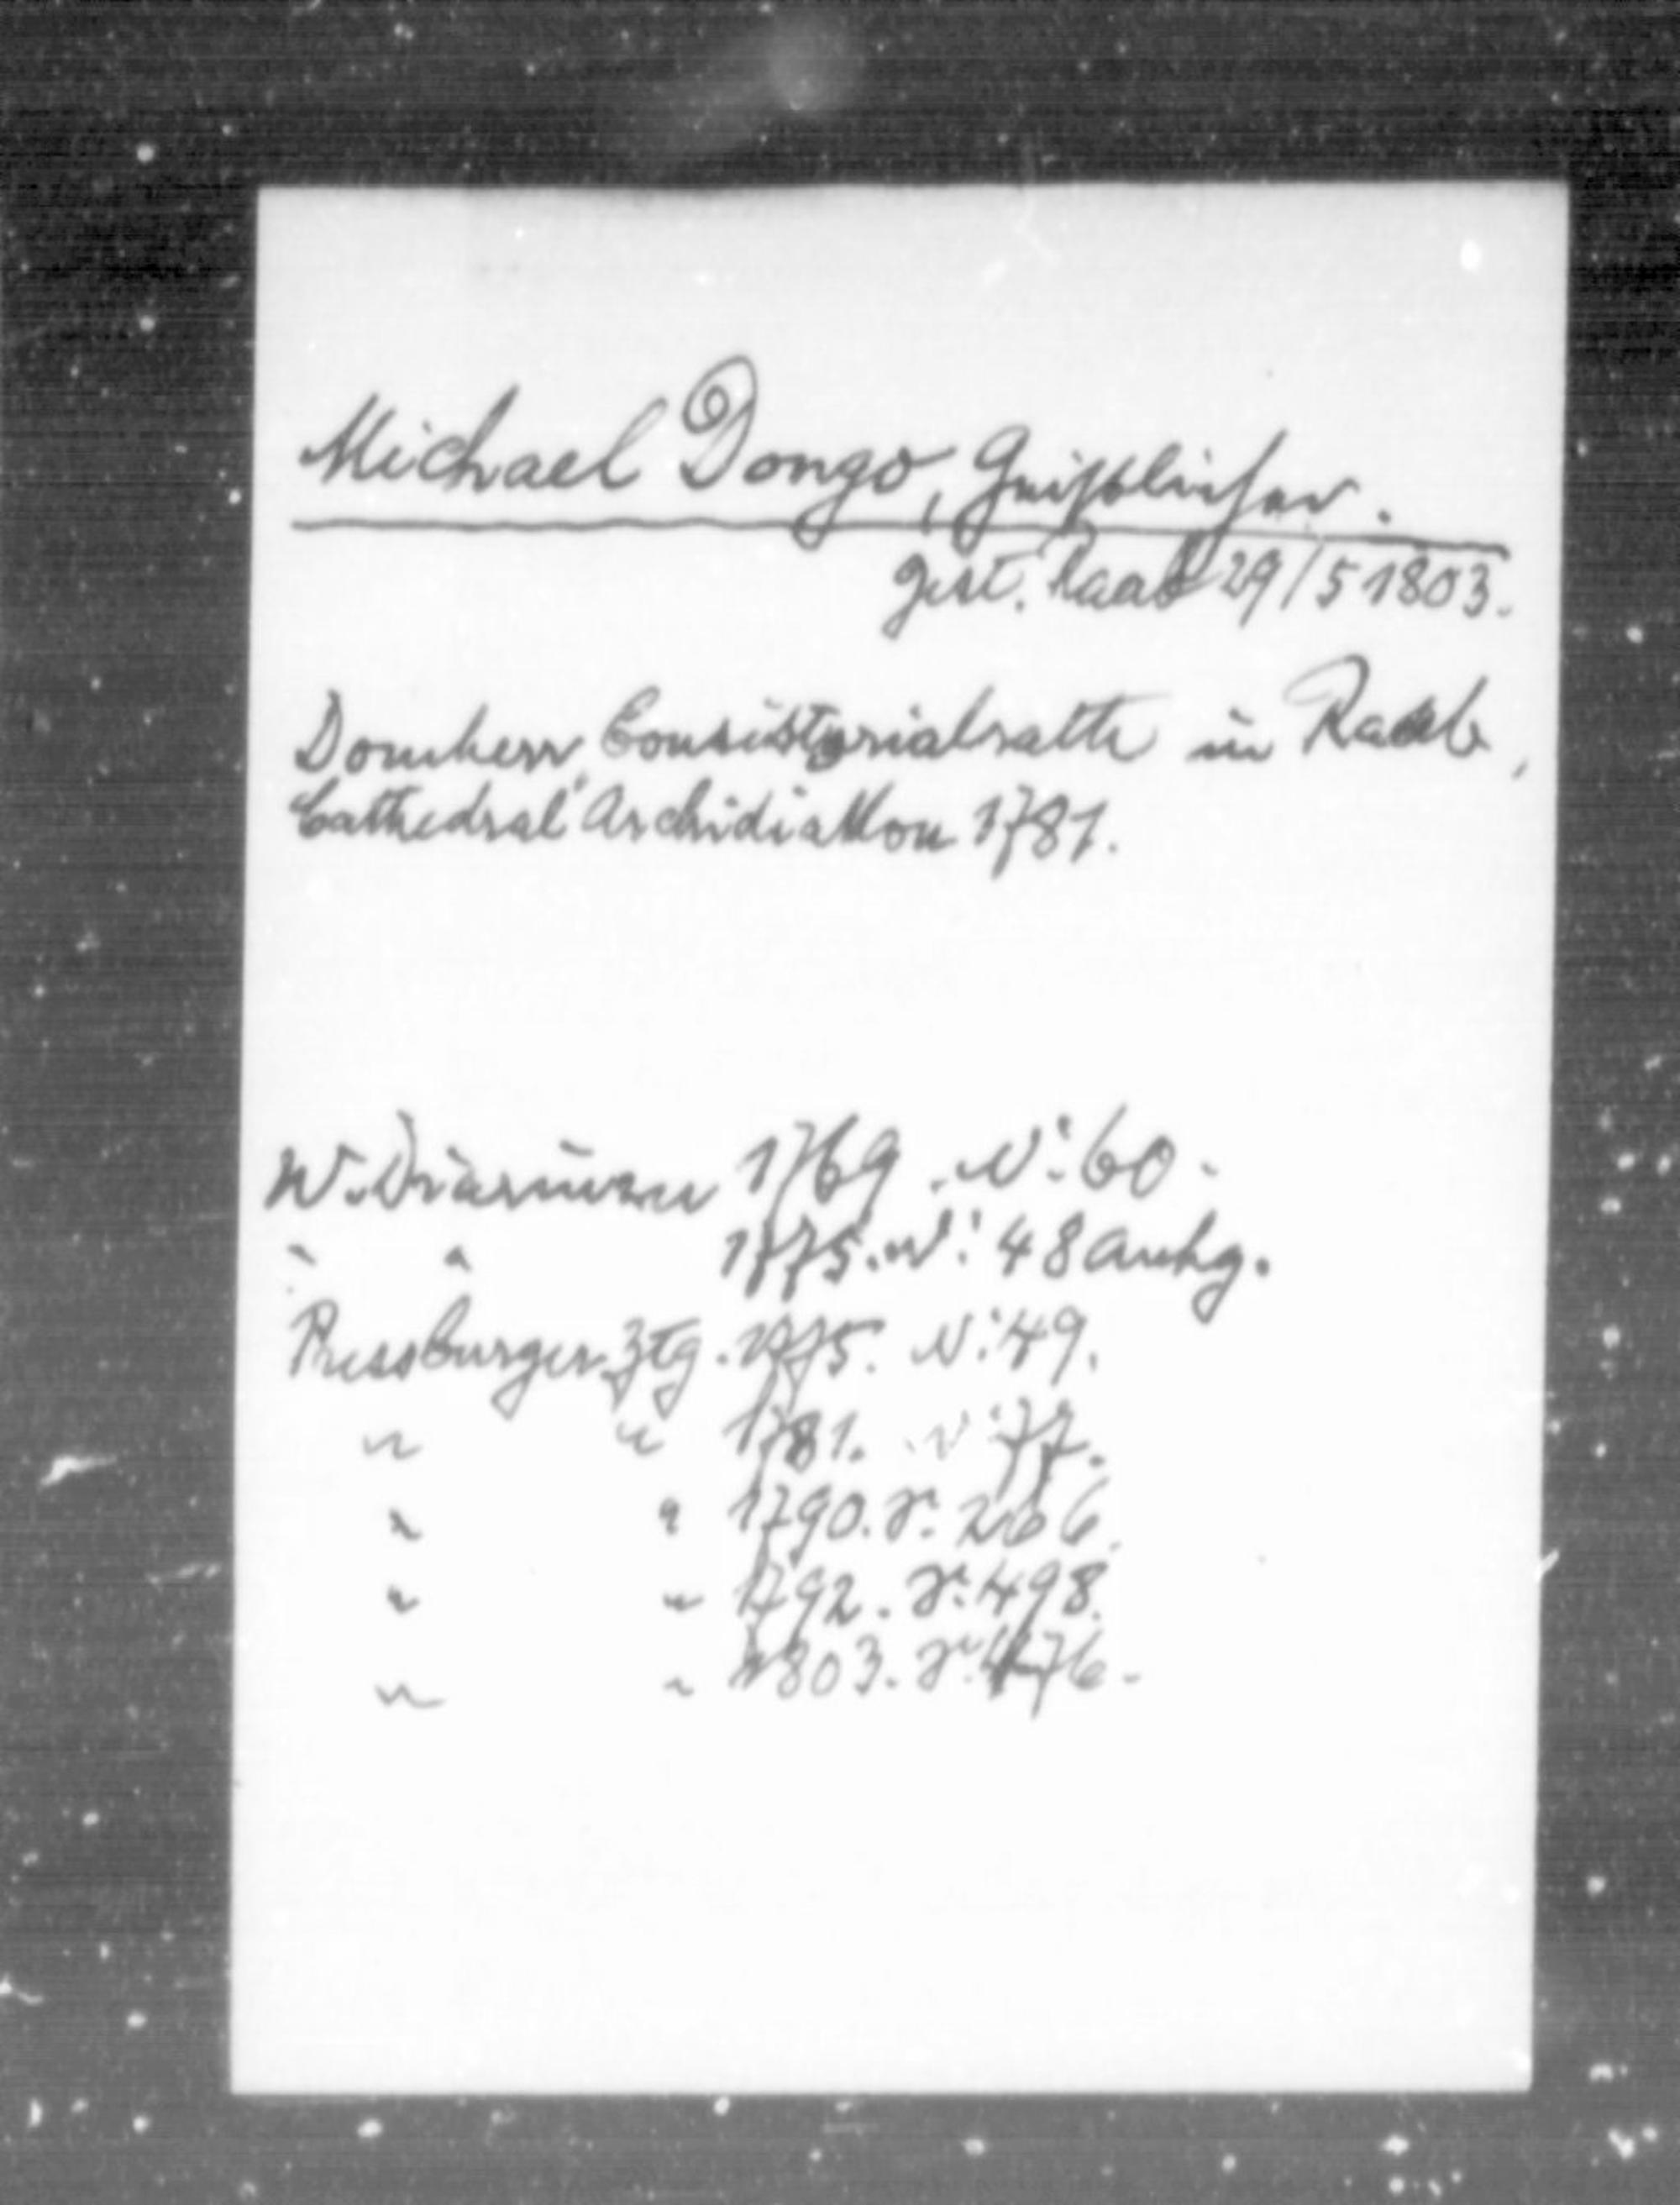 Michael Dongo, Geistlicher.
gest. Raab 29/5 1803.
Domherr, Consistorialrath in Raab,
Cathedral Archidiakon 1781.
W. Diarium 1769. N: 60.
" " 1775. N: 48 Anhg.
Pressburger Ztg. 1775. N: 49.
" " 1781. N: 77.
" " 1790. S: 266.
" " 1792. S: 498.
" " 1803. S: 476.